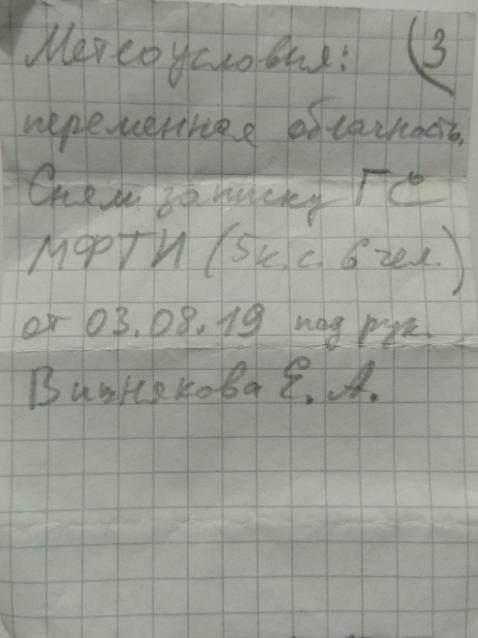 Метеоусловия: (3
переменная облачность.
Снял записку ГС
МФТИ (5к.с. 6 чел.)
от 03.08.19 под рук.
Вишнякова Е. А.